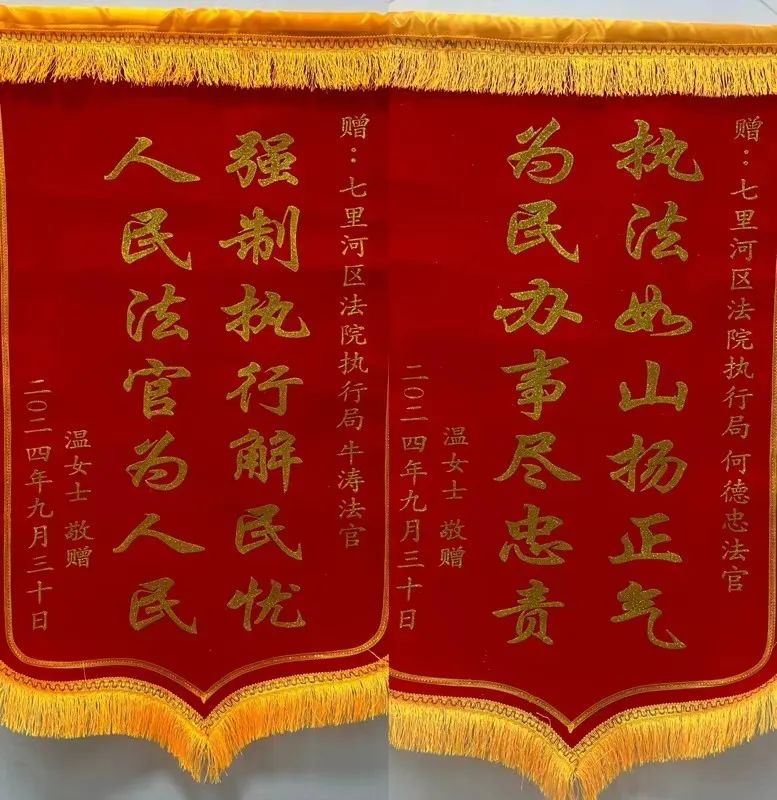 赠：七里河区法院执行局 牛涛法官
强制执行解民忧
人民法官为人民
温女士 敬赠
二〇二四年九月三十日
赠：七里河区法院执行局 何德忠法官
执法如山扬正气
为民办事尽忠责
温女士 敬赠
二〇二四年九月三十日